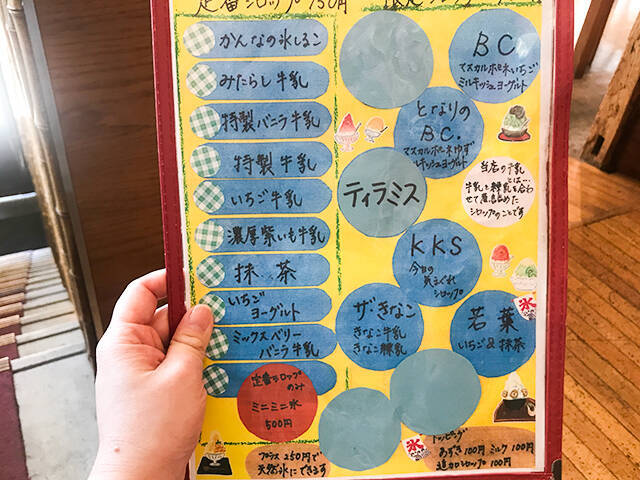 定番シロップ 750円
かんなの氷しるこ
みたらし牛乳
特製バニラ牛乳
特製牛乳
いちご牛乳
濃厚紫いも牛乳
抹茶
いちご
ヨーグルト
ミックスベリー
バニラ牛乳
定番シロップ
のみ
ミニミニ氷
500円
プラス250円で
天然氷にできます
BC
マスカルポーネいちご
ミルキッシュヨーグルト
となりの
B.C.
マスカルポーネゆず
ルキッシュヨーグルト
ティラミス
当店の牛乳
とは…
牛乳と練乳を合わ
せて煮詰めた
シロップのことです
KKS
今日の
気まぐれ
シロップ
ザ・きなこ
きなこ牛乳
きなこ練乳
若葉
いちご&抹茶
氷
氷
トッピング
あずき100円 ミルク100円
追加シロップ100円